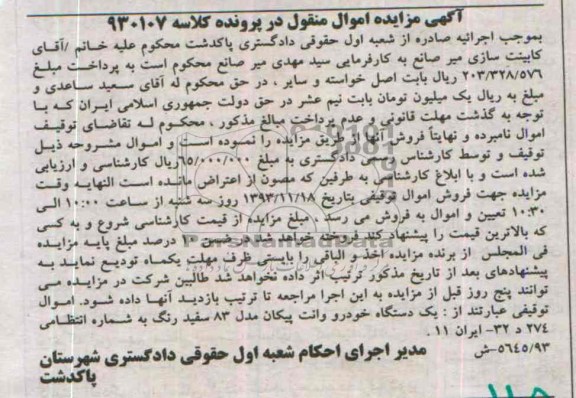 آگهی مزایده اموال منقول در پرونده کلاسه ۹۳۰۱۰۷
بموجب اجرائیه صادره از شعبه اول حقوقی دادگستری پاکدشت محکوم علیه خانم /آقای
کابینت سازی میر صانع به کارفرمایی سید مهدی میر صانع محکوم است به پرداخت مبلغ
۲۰۳/۳۲۸/۵۷۶ ریال بابت اصل خواسته و سایر ، در حق محکوم له آقای سعید ساعدی و
مبلغ به ریال یک میلیون تومان بابت نیم عشر در حق دولت جمهوری اسلامی ایران که با
توجه به گذشت مهلت قانونی و عدم پرداخت مبالغ مذکور ، محکوم له تقاضای توقیف
اموال نامبرده و نهایتاً فروش آنها از طریق مزایده را نموده است و اموال مشروحه ذیل
توقیف و توسط کارشناس رسمی دادگستری به مبلغ ۶۵/۰۰۰/۰۰۰ریال کارشناسی و ارزیابی
شده است و با ابلاغ کارشناسی به طرفین که مصون از اعتراض مانده است النهایه وقت
مزایده جهت فروش اموال توقیفی بتاریخ ۱۳۹۳/۱۱/۱۸ روز سه شنبه از ساعت ۱۰:۰۰ الی
۱۰:۳۰ تعیین و اموال به فروش می رسد . مبلغ مزایده از قیمت کارشناسی شروع و به کسی
که بالاترین قیمت را پیشنهاد کند فروخته خواهد شد و ضمن ۱۰ درصد مبلغ پایه مزایده
فی المجلس از برنده مزایده اخذ و الباقی را بایستی ظرف مهلت یکماه تودیع نماید به
پیشنهادهای بعد از تاریخ مذکور ترتیب اثر داده نخواهد شد طالبین شرکت در مزایده می
توانند پنج روز قبل از مزایده به این اجرا مراجعه تا ترتیب بازدید آنها داده شود. اموال
توقیفی عبارتند از : یک دستگاه خودرو وانت پیکان مدل ۸۳ سفید رنگ به شماره انتظامی
۲۷۴ د ۳۲- ایران ۱۱ .
۵۶۴۵/۹۳-ش
مدیر اجرای احکام شعبه اول حقوقی دادگستری شهرستان
پاکدشت